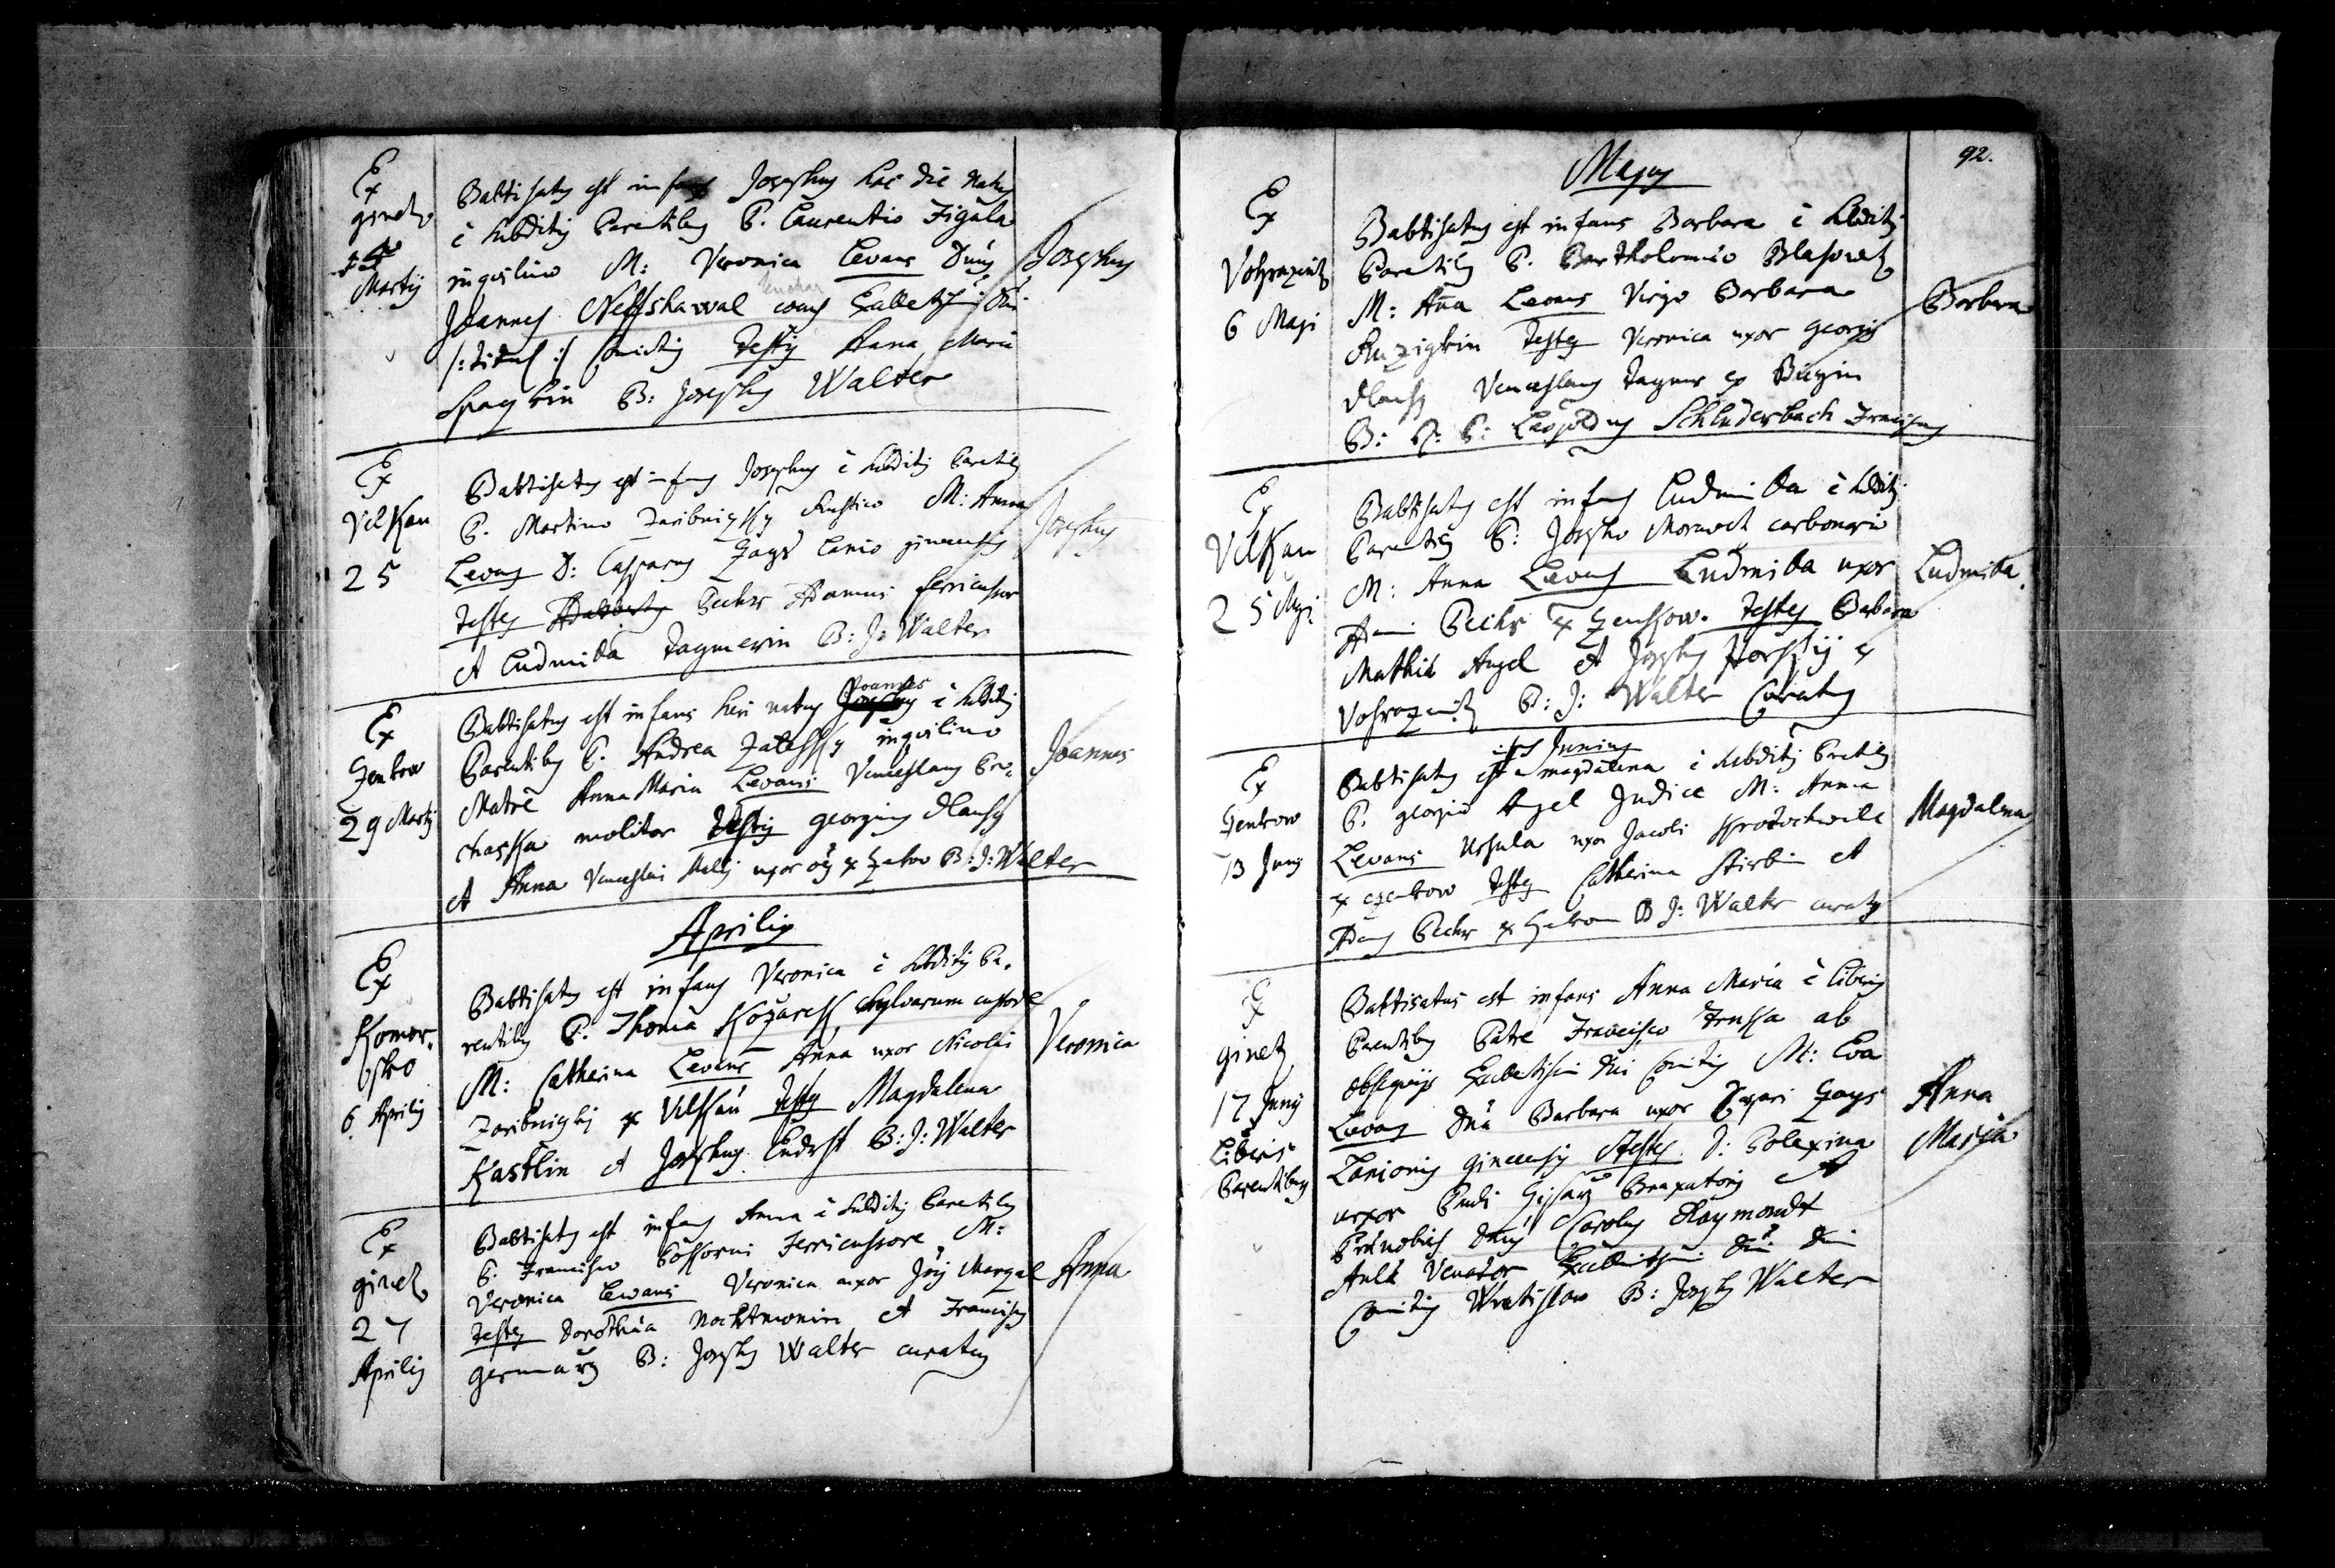 Ex
ginetz
Martij
Babtisatus est infans Josephus hac die natus
è subditis Parentibus P. Laurentio Figala
inquilino M: Veronica Levans Dnus
Joannes coquus Excellentissimi Dni
/:titul:/ Comitis Testes Anna Maria
B: Josephus Walter
Josephus
Ex
Vilkau
25
Babtisatus est infans Josephus è subditis Parentibus
P. Martino Zaribnizky Rustico M: Anna
Levans D: Casparus Zays Lanio ginecensis
Testes Pecher Adamus ferricusor
et Ludmila Tagnerin B: J: Walter
Josephus
Ex
Zenkow
29 Martij
Babtisatus est infans heri natus Joannes è subditis
Parentibus P. Andrea Zateszky inquilino
Matre Anna Maria Levans Venceslaus Pro-
chaska molitor Testes georgius Dlausy
et Anna Venceslai uxor ex B: J: Walter
Joannes
Aprilis
Ex
Komor-
sko
6 Aprilis
Babtisatus est infans Veronica è subditis Pa-
rentibus P. Thoma Kozareck, sylvarum custode
M: Catherina Levans Anna uxor Nicolai
Zaribnizky ex Vilkau Testes Magdalena
Kastlin et Josephus Endrst B: J: Walter
Veronica
Ex
ginetz
27
Aprilis
Babtisatus est infans Anna è subditis Parentibus
P. Francisco Ferricussore M:
Veronica Levans Veronica uxor Jirij
Testes Dorothea et Franciscus
B: Josephus Walter curatus
Anna
92.
Majus
Ex
Vohrazenitz
6 Maji
Babtisatus est infans Barbara è subditis
Parentibus P. Bartholomeo Blasowetz
M: Anna Levans Virgo Barbara
Testes Veronica uxor georgij
Dlausy Venceslaus Tagner ex
B: R: P: Leopoldus Schluderbach Franciscus
Barbara
Ex
Vilkau
25 Maji
Babtisatus est infans Ludmila è subditis
Parentibus P: Josepho Morawek carbonario
M: Anna Levans Ludmila uxor
Adami Pecher ex Zenkow. Testes Babara
Mathia Angel et Josephus ex
Vohrazenitz B: J: Walter Curatus
Ludmila.
Junius
Ex
Zenkow
13 Junij
Babtisatus est infans Magdalena è subditis Parentibus
P. georgio Angel Judice M: Anna
Levans Ursula uxor Jacobi
ex Zenkow Testes Catherina et
Adamus Pecher ex Zenkow B J: Walter curatus
Magdalena
Ex
ginetz
17 Junij
Liberis
Parentibus
Babtisatus est infans Anna Maria è liberis
Parentibus Patre Francisco Truska ab
obsequijs Excellentissimi Dni Comitis M: Eva
Levans Dna Barbara uxor Caspari Zays
Lanionis ginecensis Testes D: Polexina
uxor Pauli Braxatoris et
Dnus Carolus Raymondt
Aulae Venator Excellentissimi Dni Dni
Comitis Wratislaw B: Josephus Walter
Anna
Maria